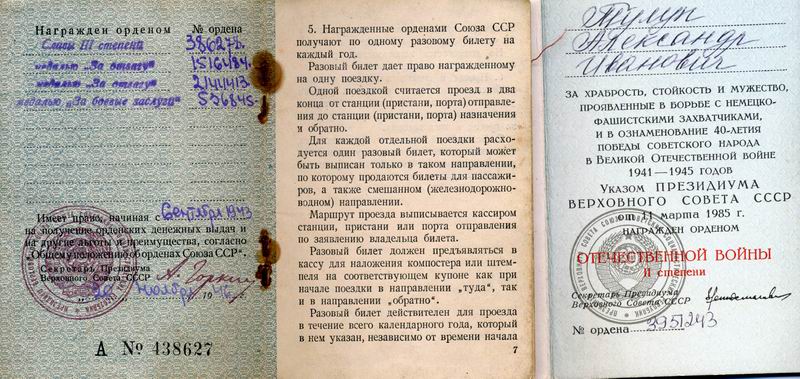 Награжден орденом № ордена
Славы III степени 386271.
медалью „За отвагу" 1516484.
медалью „За отвагу" 2144413.
медалью „За боевые заслуги" 536845.
Имеет право, начиная с Сентября 1943
на получение орденских денежных выдач и
на другие льготы и преимущества, согласно
„Общему положению об орденах Союза ССР".
Секретарь Президиума
Верховного Совета СССР А. Горкин
ноября 1946 г.
А № 438627
5. Награжденные орденами Союза ССР
получают по одному разовому билету на
каждый год.
Разовый билет дает право награжденному
на одну поездку.
Одной поездкой считается проезд в два
конца от станции (пристани, порта) отправле-
ния до станции (пристани, порта) назначения
и обратно.
Для каждой отдельной поездки расхо-
дуется один разовый билет, который может
быть выписан только в таком направлении,
по которому продаются билеты для пассажи-
ров, а также смешанном (железнодорожно-
водном) направлении.
Маршрут проезда выписывается кассиром
станции, пристани или порта отправления
по заявлению владельца билета.
Разовый билет должен предъявляться в
кассу для наложения компостера или штем-
пеля на соответствующем купоне как при
начале поездки в направлении „туда", так
и в направлении „обратно".
Разовый билет действителен для проезда
в течение всего календарного года, который
в нем указан, независимо от времени начала
7
Тулуп
Александр
Иванович
ЗА ХРАБРОСТЬ, СТОЙКОСТЬ И МУЖЕСТВО,
ПРОЯВЛЕННЫЕ В БОРЬБЕ С НЕМЕЦКО-
ФАШИСТСКИМИ ЗАХВАТЧИКАМИ,
И В ОЗНАМЕНОВАНИЕ 40-ЛЕТИЯ
ПОБЕДЫ СОВЕТСКОГО НАРОДА
В ВЕЛИКОЙ ОТЕЧЕСТВЕННОЙ ВОЙНЕ
1941—1945 ГОДОВ
Указом ПРЕЗИДИУМА
ВЕРХОВНОГО СОВЕТА СССР
от 11 марта 1985 г.
НАГРАЖДЕН ОРДЕНОМ
ОТЕЧЕСТВЕННОЙ ВОЙНЫ
II степени
Секретарь Президиума
Верховного Совета СССР
№ ордена 3951243